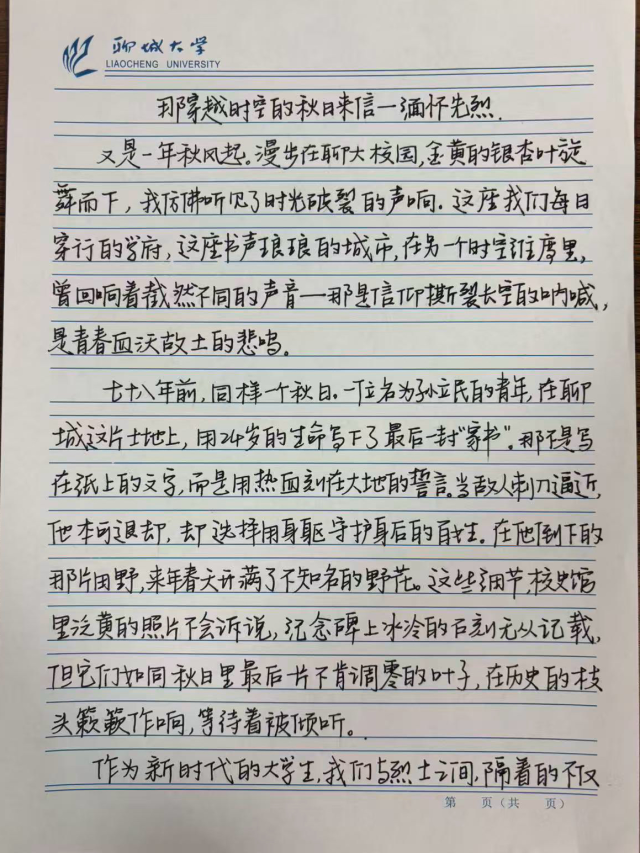 聊城大学
LIAOCHENG UNIVERSITY
那穿越时空的秋日来信—缅怀先烈.
又是一年秋风起。漫步在聊大校园,金黄的银杏叶旋
舞而下,我仿佛听见了时光破裂的声响.这座我们每日
穿行的学府,这座书声琅琅的城市,在另一个时空维度里,
曾回响着截然不同的声音—那是信仰撕裂长空的呐喊,
是青春血沃故土的悲鸣。
七十八年前,同样一个秋日。一位名为孙立民的青年,在聊
城这片土地上,用24岁的生命写下了最后一封"家书".那不是写
在纸上的文字,而是用热血刻在大地的誓言.当敌人刺刀逼近,
他本可退却,却选择用身躯守护身后的百姓.在他倒下的
那片田野,来年春天开满了不知名的野花。这些细节,校史馆
里泛黄的照片不会诉说,纪念碑上冰冷的石刻无从记载,
但它们如同秋日里最后一片不肯凋零的叶子,在历史的枝
头簌簌作响,等待着被倾听。
作为新时代的大学生,我们与烈士之间,隔着的不仅
第 页(共 页)